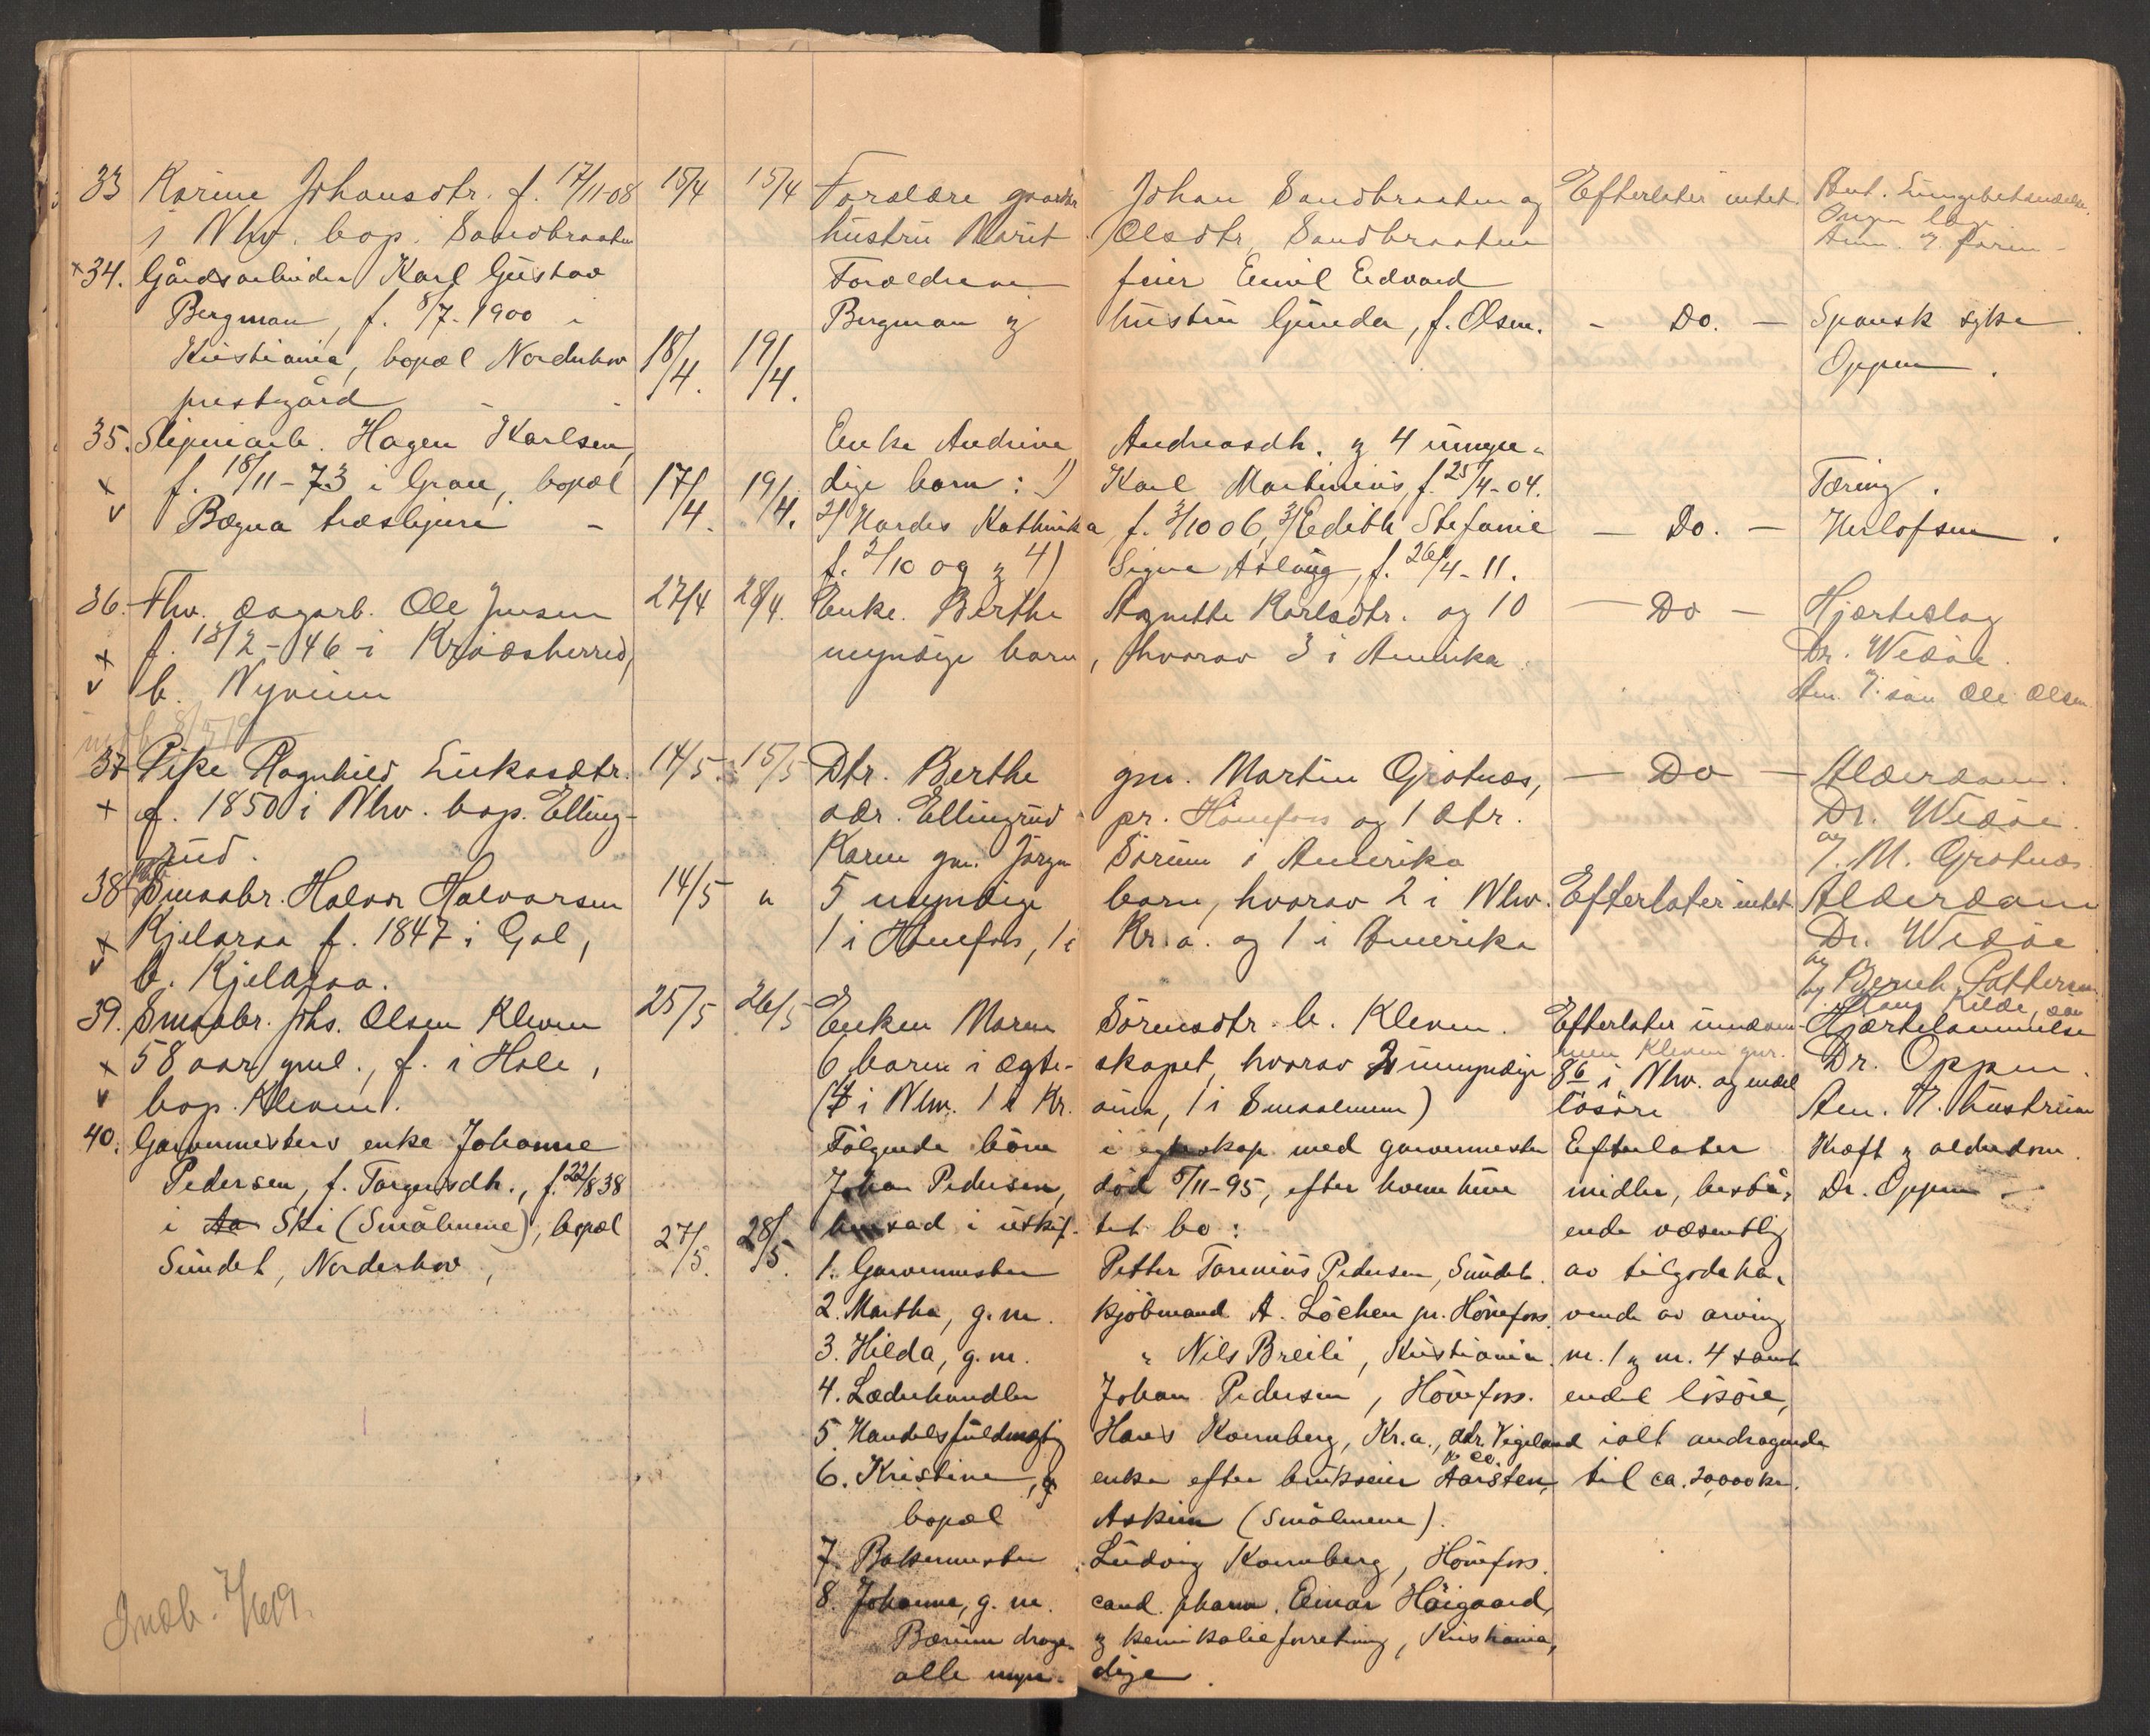 33 Karine Johansdtr. f. 17/11-08 15/4 15/4 Forældre gaardbr. Johan Sandbraaten og Efterlater intet.
i Nhv. bop. Sandbraaten hustru Marit Olsdtr. Sandbraaten
34. Gårdsarbeider Karl Gustav Forældrene feier Emil Edvard
Bergman, f. 8/7-1900 i Bergman og hustru Gunda, f. Olsen. - Do. - Spansk syke
Kristiania, bopæl Norderhov 18/4. 19/4. Oppen.
prestegård -
35. Sliperiarb. Hagen Karlsen, Enke Andrine Andreasdtr. og 4 umyn-
f. 18/11-73 i Gran, bopæl 17/4. 19/4. dige barn: 1) Karl Martinius, f. 25/4-04. Tæring.
Bægna træsliperi - 2) Hardis Kathinka, f. 3/10 06, 3) Edith Stefanie - Do. - Herlofsen.
f. 2/10 09 og 4) Signe Aslaug, f. 26/4-11.
36. Fhv. dagarb. Ole Jensen 27/4 28/4. Enke. Berthe Agnette Karlsdtr. og 10 - Do - Hjerteslag
f. 18/2-46 i Krødsherred, myndige barn, hvorav 3 i Amerika. Dr. Wedøe.
b. Nyruen An. v. søn Ole Olsen
37 Pike Ragnhild Lukasdtr. 14/5. 15/5 Dtr. Berthe gm. Martin Grøtnæs, - Do - Alderdom.
f. 1850 i Nhv. bop. Elling- adr. Ellingrud pr. Hønefoss og 1 dtr. Dr. Wedøe.
rud. Karen gm. Jørgen Sørum i Amerika v. M. Grøtnæs
38 Smaabr. Halvor Halvorsen 14/5 " 5 myndige barn, hvorav 2 i Nhv. Efterlater intet Alderdom
Kjelaraa f. 1847 i Gol, 1 i Hønefoss, 1 i Kr.a. og 1 i Amerika Dr. Wedøe
b. Kjelaraa.
39. Smaabr. Johs. Olsen Kleven 25/5 26/5 Enken Maren Sørensdtr. b. Kleven. Efterlater Hjertelammelse
58 aar gml., f. i Hole, 6 barn i ægte- skapet, hvorav 2 umyndige Dr. Oppen.
bop. Kleven. (4 i Nhv. 1 i Kr. ania, 1 i Smaalenene) 86 i Nhv. og endel løsøre An. v. hustruen
40. Garvermesters enke Johanne Følgende børn i egteskap med garvermester Efterlater Kræft og alderdom.
Pedersen, f. Torgersdtr., f. 22/8 38 Johan Pedersen, død 5/11-95, efter hvem hun midler, bestå- Dr. Oppen
i Ski (Smålenene), bopæl 27/5. 28/5. hensad i uskif- tet bo: ende væsentlig
Sundet, Norderhov, 1. Garvermester Petter Torenius Pedersen, Sundet. av tilgodeha-
2. Martha, g. m. kjøbmand A. Løchen pr. Hønefoss. vende av arving
3. Hilda, g. m. " Nils Breili, Kristiania. nr. 1 og nr. 4 samt
4. Læderhandler Johan Pedersen, Hønefoss. endel løsøre,
5. Handelsfuldmægtig Hans Kornberg, Kr.a., adr. Vigeland & co. ialt andragende
6. Kristine, enke efter brukseier Aarsten, til ca. 20,000 kr.
bopæl Askim (Smålenene).
7. Bakermester Ludvig Kornberg, Hønefoss.
8. Johanne, g. m. cand. pharm. Einar Høigaard,
Bærum droge- og kemikalieforretning, Kristiania,
alle myn- dige.
Indb. 7/6 19.